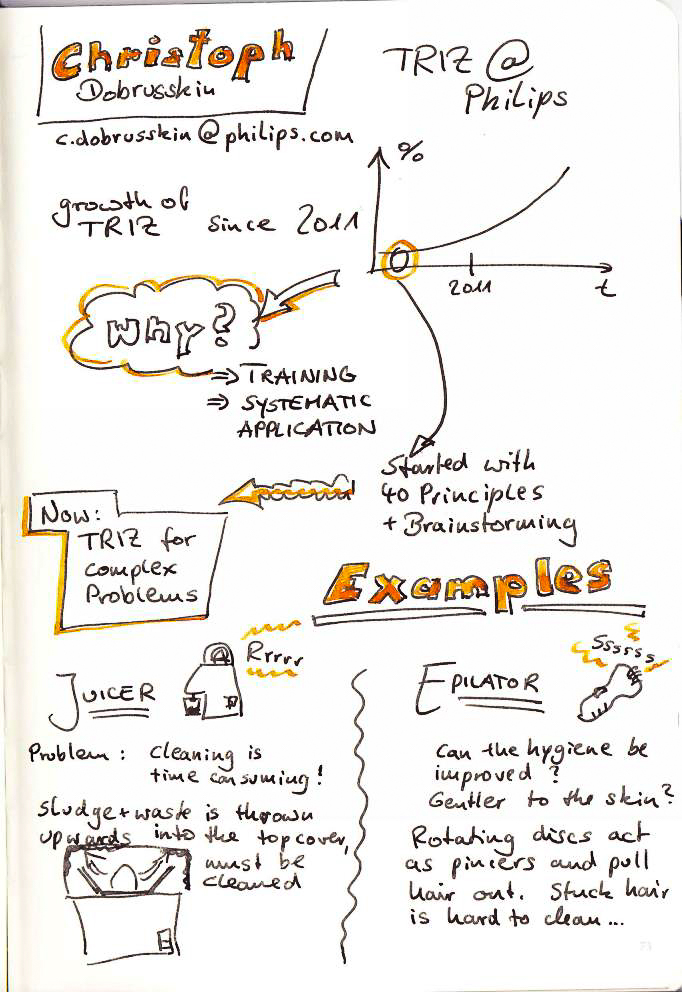 Christoph
Dobrusskin
TRIZ @
Philips
c.dobrusskin@philips.com
%
growth of
TRIZ since 2011
2011
t
Why?
⇒ TRAINING
⇒ SYSTEMATIC
APPLICATION
Started with
40 Principles
+ Brainstorming
Now:
TRIZ for
complex
Problems
Examples
JUICER
Rrrrr
Problem: Cleaning is
time consuming!
Sludge + waste is thrown
upwards into the top cover,
must be
cleaned
EPILATOR
Ssssss
Can the hygiene be
improved?
Gentler to the skin?
Rotating discs act
as pincers and pull
hair out. Stuck hair
is hard to clean...